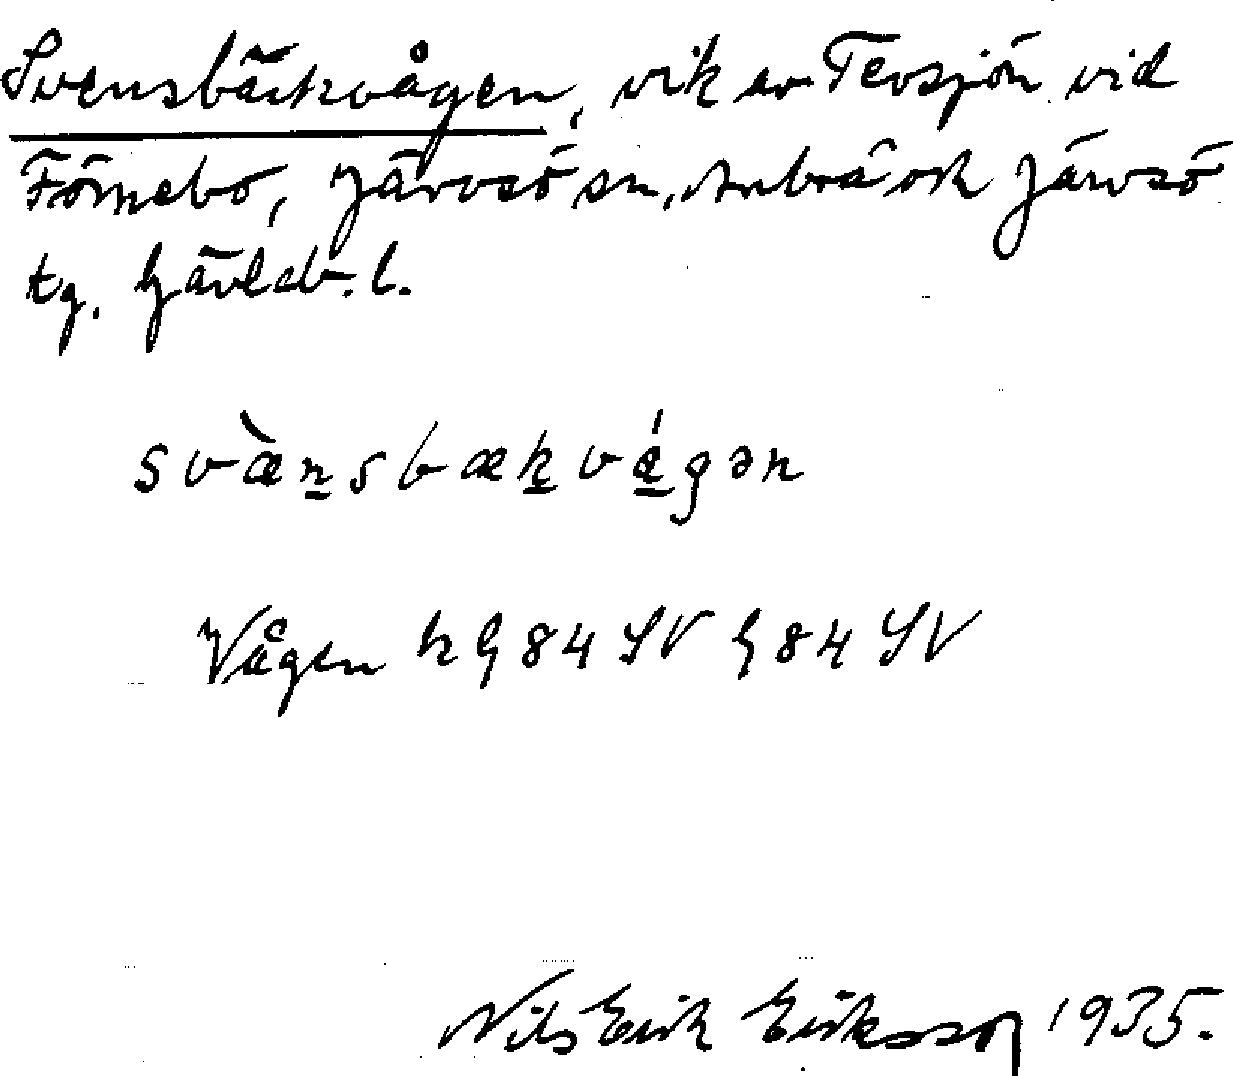 Svensbäckvågen, vik av Tevsjön vid
Förnebo, Järvsö sn, Arbrå och Järvsö
tg. Gävleb. l.
svæ̀n̲sbæk̲vá̲gən
Vågen k G 84 SV G 84 SV
Nils Erik Eriksson 1935.